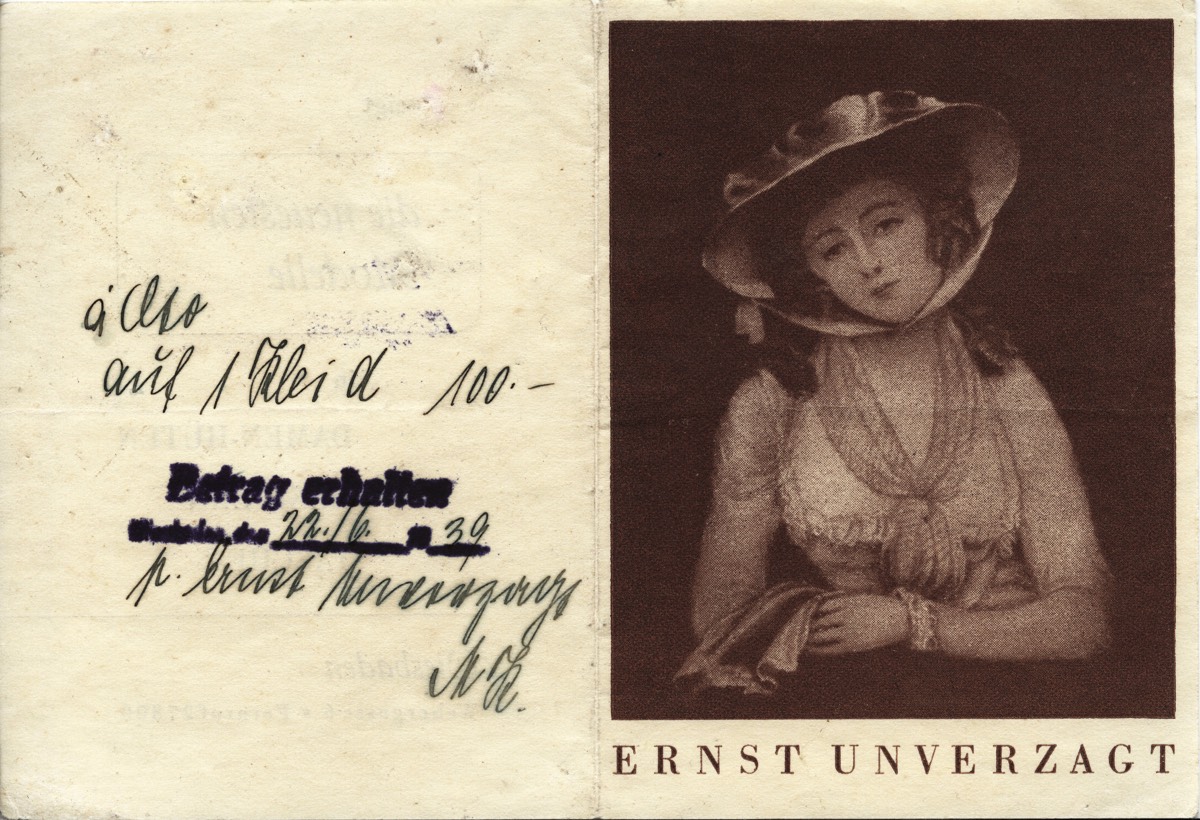 à Cto
auf 1 Kleid 100.–
Betrag erhalten
Wiesbaden, den 22./6. 19 39
p. Ernst Unverzagt
ERNST UNVERZAGT